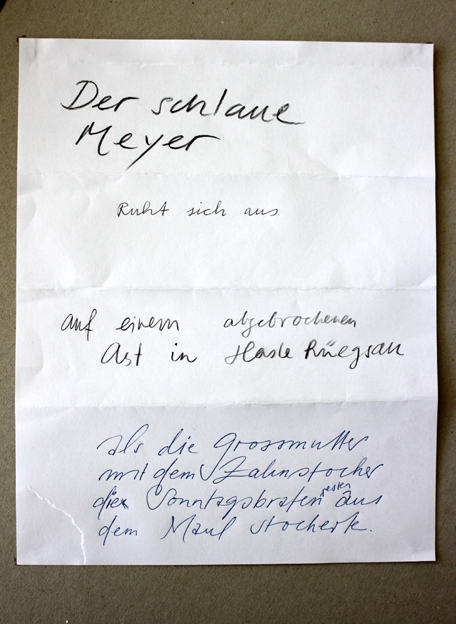 Der schlaue
Meyer
Ruht sich aus
auf einem abgebrochenen
Ast in Hasle Rüegsau
als die Grossmutter
mit dem Zahnstocher
die Sonntagsbratenresten aus
dem Maul stocherte.